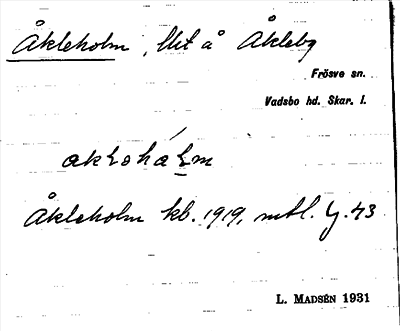 Åkleholm, lht å Åkleby
Frösve sn.
Vadsbo hd. Skar. l.
Åkleholm kb. 1919, mtl. 43
L. MADSÉN 1931